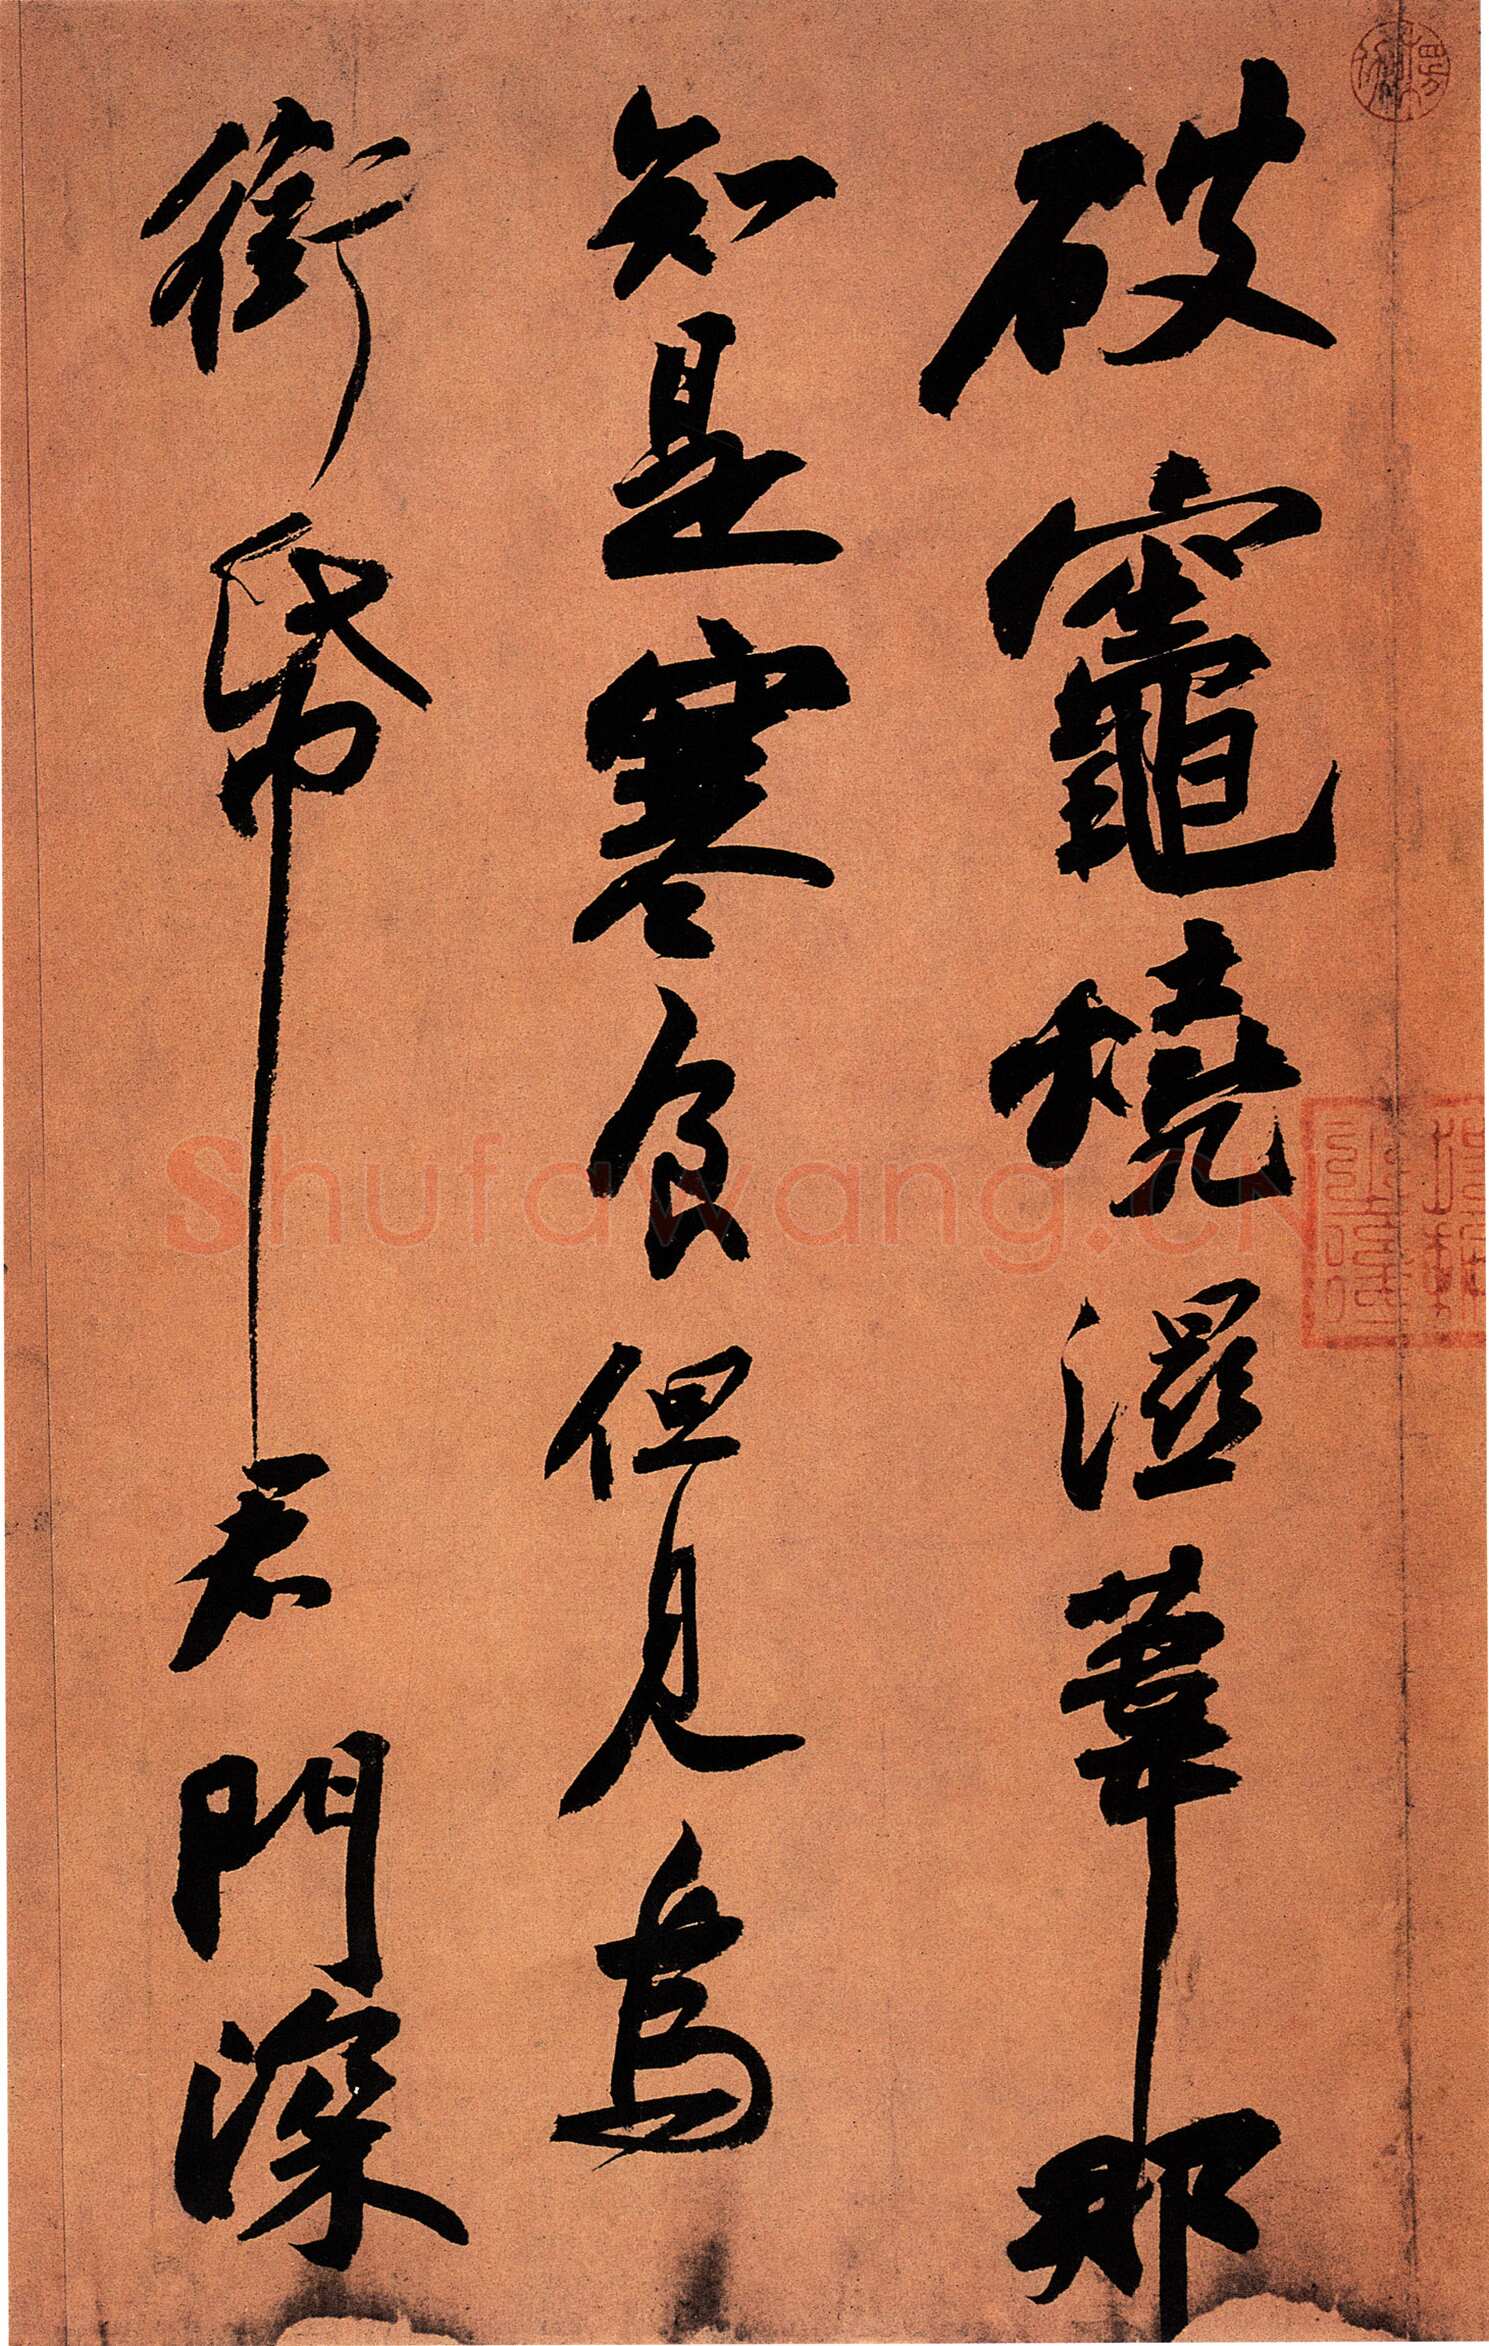 破竈燒濕葦那
知是寒食但見烏
銜帋君門深
Shufawang.CN